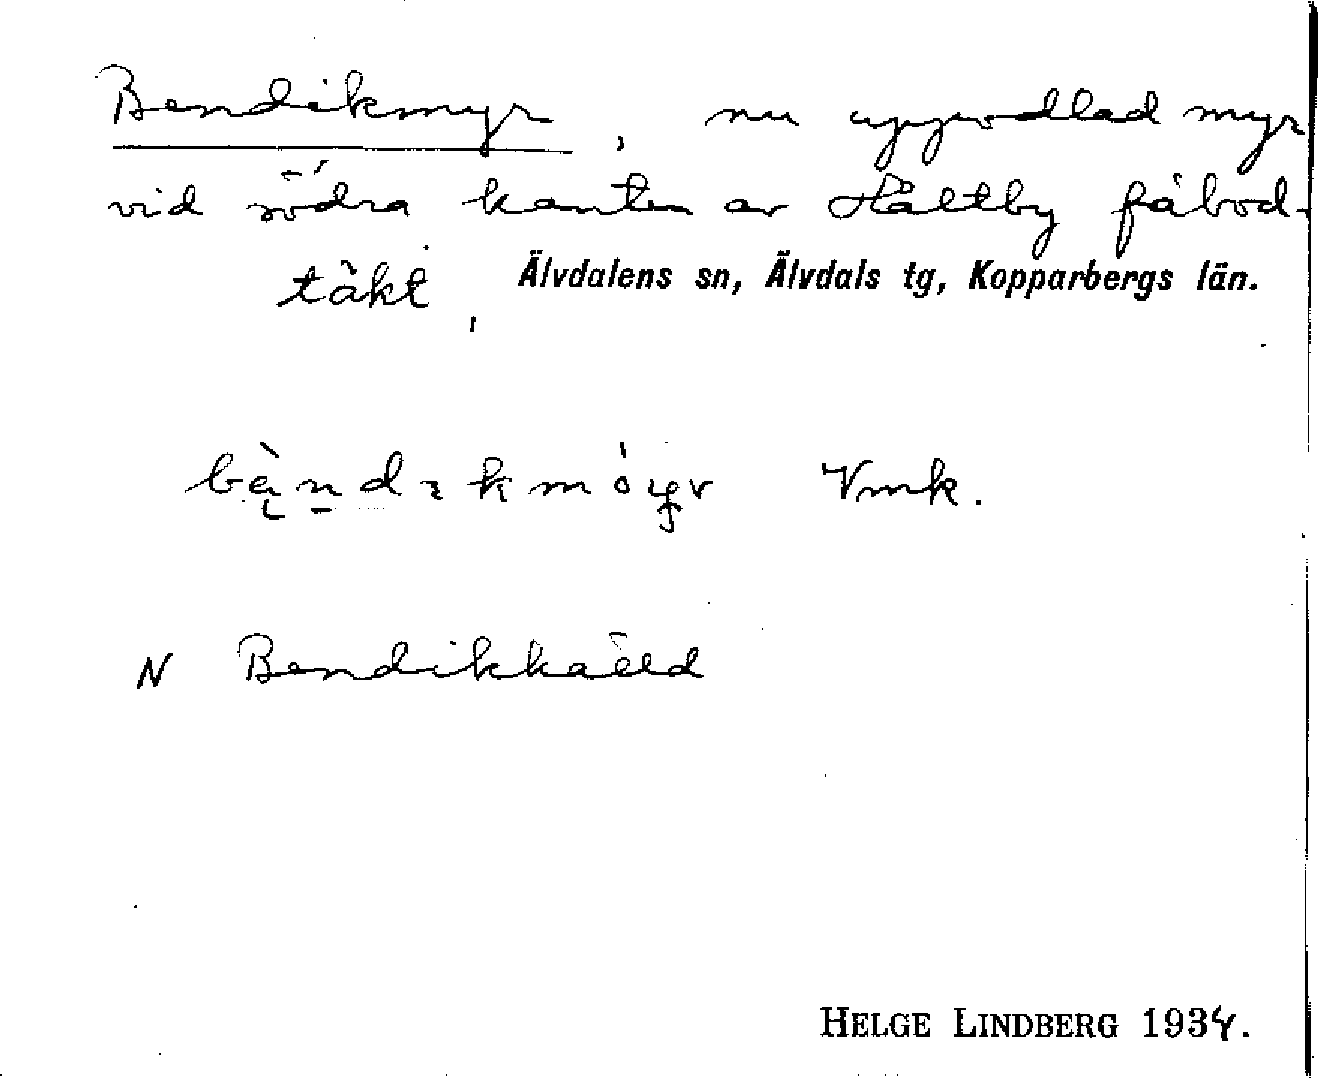 Bendikmyr, nu uppodlad myr
vid södra kanten av Håltby fäbod-
täkt, Älvdalens sn, Älvdals tg, Kopparbergs län.
Vmk.
N Bendikkäild
HELGE LINDBERG 1934.